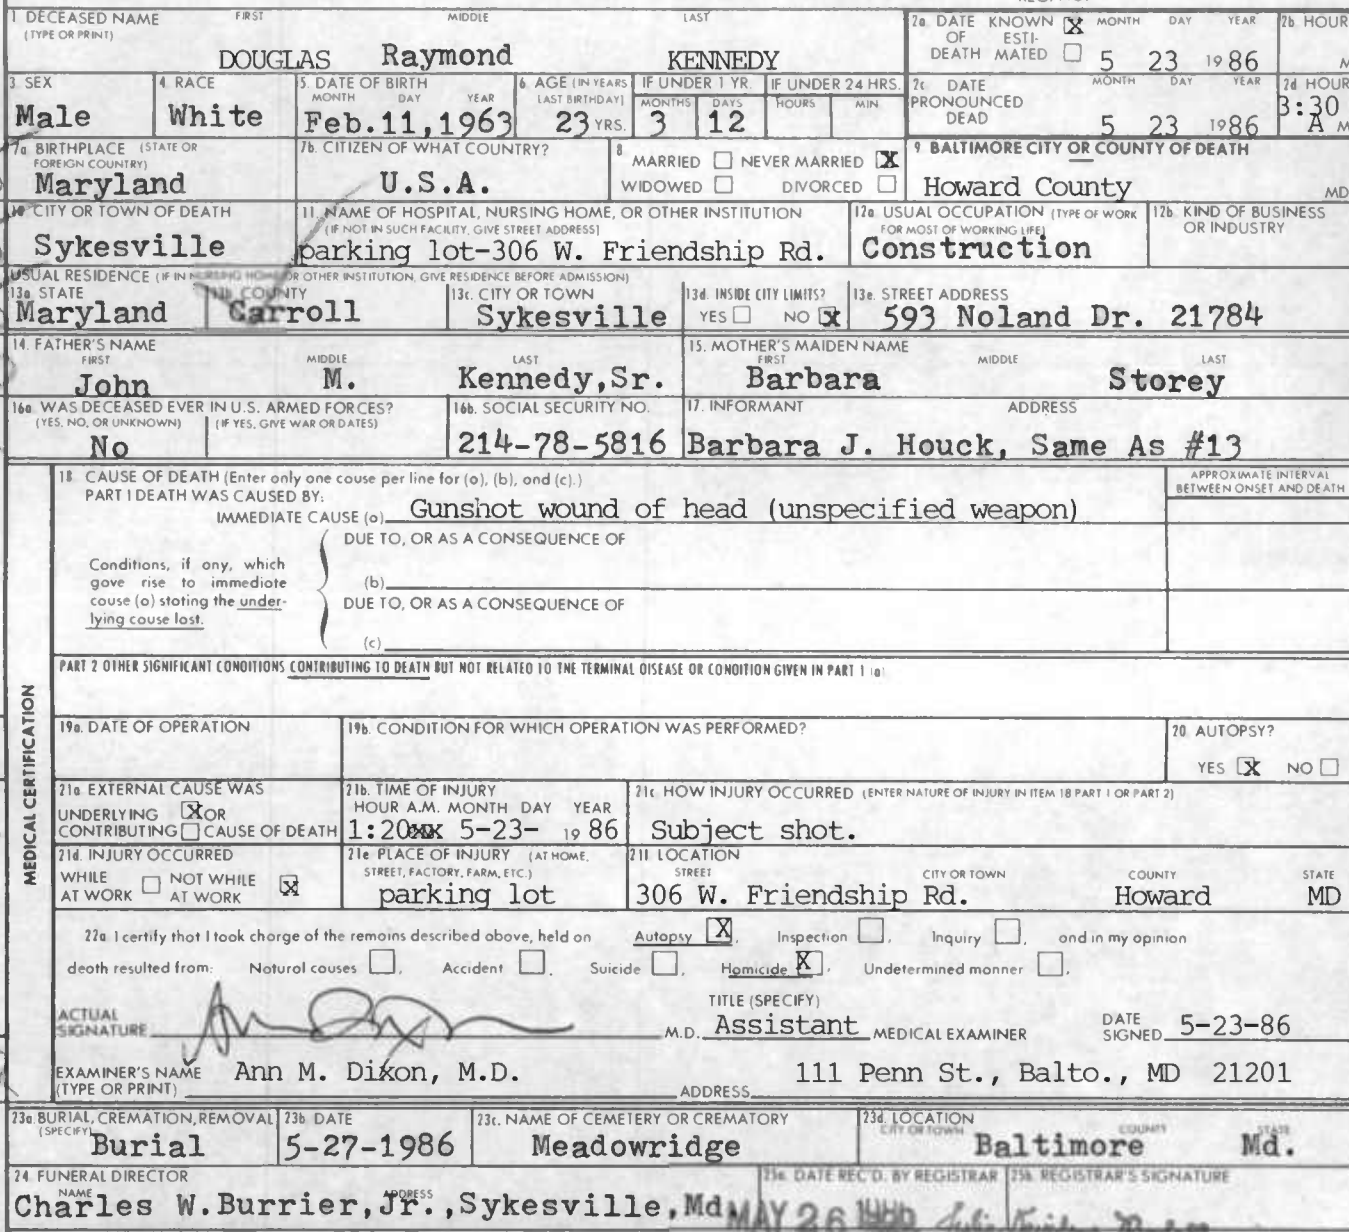 1 DECEASED NAME FIRST MIDDLE LAST
(TYPE OR PRINT)
DOUGLAS Raymond KENNEDY
2a. DATE KNOWN [X] MONTH DAY YEAR
OF ESTI-
DEATH MATED [ ] 5 23 1986
2b. HOUR
M
3 SEX
Male
4 RACE
White
5. DATE OF BIRTH
MONTH DAY YEAR
Feb.11,1963
6. AGE (IN YEARS
LAST BIRTHDAY)
23 YRS.
IF UNDER 1 YR.
MONTHS DAYS
3 12
IF UNDER 24 HRS.
HOURS MIN
2c DATE MONTH DAY YEAR
PRONOUNCED
DEAD 5 23 1986
2d HOUR
3:30
A M
7a BIRTHPLACE (STATE OR
FOREIGN COUNTRY)
Maryland
7b. CITIZEN OF WHAT COUNTRY?
U.S.A.
8
MARRIED [ ] NEVER MARRIED [X]
WIDOWED [ ] DIVORCED [ ]
9 BALTIMORE CITY OR COUNTY OF DEATH
Howard County MD
10 CITY OR TOWN OF DEATH
Sykesville
11. NAME OF HOSPITAL, NURSING HOME, OR OTHER INSTITUTION
(IF NOT IN SUCH FACILITY, GIVE STREET ADDRESS)
parking lot-306 W. Friendship Rd.
12a. USUAL OCCUPATION (TYPE OF WORK
FOR MOST OF WORKING LIFE)
Construction
12b. KIND OF BUSINESS
OR INDUSTRY
USUAL RESIDENCE (IF IN NURSING HOME OR OTHER INSTITUTION, GIVE RESIDENCE BEFORE ADMISSION)
13a STATE
Maryland
13b COUNTY
Carroll
13c. CITY OR TOWN
Sykesville
13d. INSIDE CITY LIMITS?
YES [ ] NO [X]
13e. STREET ADDRESS
593 Noland Dr. 21784
14. FATHER'S NAME
FIRST MIDDLE LAST
John M. Kennedy,Sr.
15. MOTHER'S MAIDEN NAME
FIRST MIDDLE LAST
Barbara Storey
16a. WAS DECEASED EVER IN U.S. ARMED FORCES?
(YES, NO, OR UNKNOWN) (IF YES, GIVE WAR OR DATES)
No
16b. SOCIAL SECURITY NO.
214-78-5816
17. INFORMANT ADDRESS
Barbara J. Houck, Same As #13
MEDICAL CERTIFICATION
18 CAUSE OF DEATH (Enter only one couse per line for (a), (b), and (c).)
PART I DEATH WAS CAUSED BY:
IMMEDIATE CAUSE (a) Gunshot wound of head (unspecified weapon)
APPROXIMATE INTERVAL
BETWEEN ONSET AND DEATH
DUE TO, OR AS A CONSEQUENCE OF
Conditions, if any, which
gove rise to immediate
cause (a) stating the under-
lying couse last.
(b)
DUE TO, OR AS A CONSEQUENCE OF
(c)
PART 2 OTHER SIGNIFICANT CONDITIONS CONTRIBUTING TO DEATH BUT NOT RELATED TO THE TERMINAL DISEASE OR CONDITION GIVEN IN PART 1 (a)
19a. DATE OF OPERATION
19b. CONDITION FOR WHICH OPERATION WAS PERFORMED?
20 AUTOPSY?
YES [X] NO [ ]
21a EXTERNAL CAUSE WAS
UNDERLYING [X] OR
CONTRIBUTING [ ] CAUSE OF DEATH
21b. TIME OF INJURY
HOUR A.M. MONTH DAY YEAR
1:20xx 5-23- 1986
21c HOW INJURY OCCURRED (ENTER NATURE OF INJURY IN ITEM 18 PART 1 OR PART 2)
Subject shot.
21d. INJURY OCCURRED
WHILE [ ] NOT WHILE [X]
AT WORK AT WORK
21e PLACE OF INJURY (AT HOME,
STREET, FACTORY, FARM, ETC.)
parking lot
21f LOCATION
STREET CITY OR TOWN COUNTY STATE
306 W. Friendship Rd. Howard MD
22a I certify that I took charge of the remains described above, held on Autopsy [X], Inspection [ ], Inquiry [ ], and in my opinion
death resulted from: Natural causes [ ], Accident [ ], Suicide [ ], Homicide [X], Undetermined manner [ ],
ACTUAL
SIGNATURE M.D.
TITLE (SPECIFY)
Assistant MEDICAL EXAMINER
DATE
SIGNED 5-23-86
EXAMINER'S NAME
(TYPE OR PRINT) Ann M. Dixon, M.D.
ADDRESS 111 Penn St., Balto., MD 21201
23a BURIAL, CREMATION, REMOVAL
(SPECIFY)
Burial
23b DATE
5-27-1986
23c. NAME OF CEMETERY OR CREMATORY
Meadowridge
23d. LOCATION
CITY OR TOWN COUNTY STATE
Baltimore Md.
24 FUNERAL DIRECTOR
NAME ADDRESS
Charles W.Burrier,Jr.,Sykesville,Md.
25a. DATE REC'D. BY REGISTRAR
MAY 26 1986
25b. REGISTRAR'S SIGNATURE